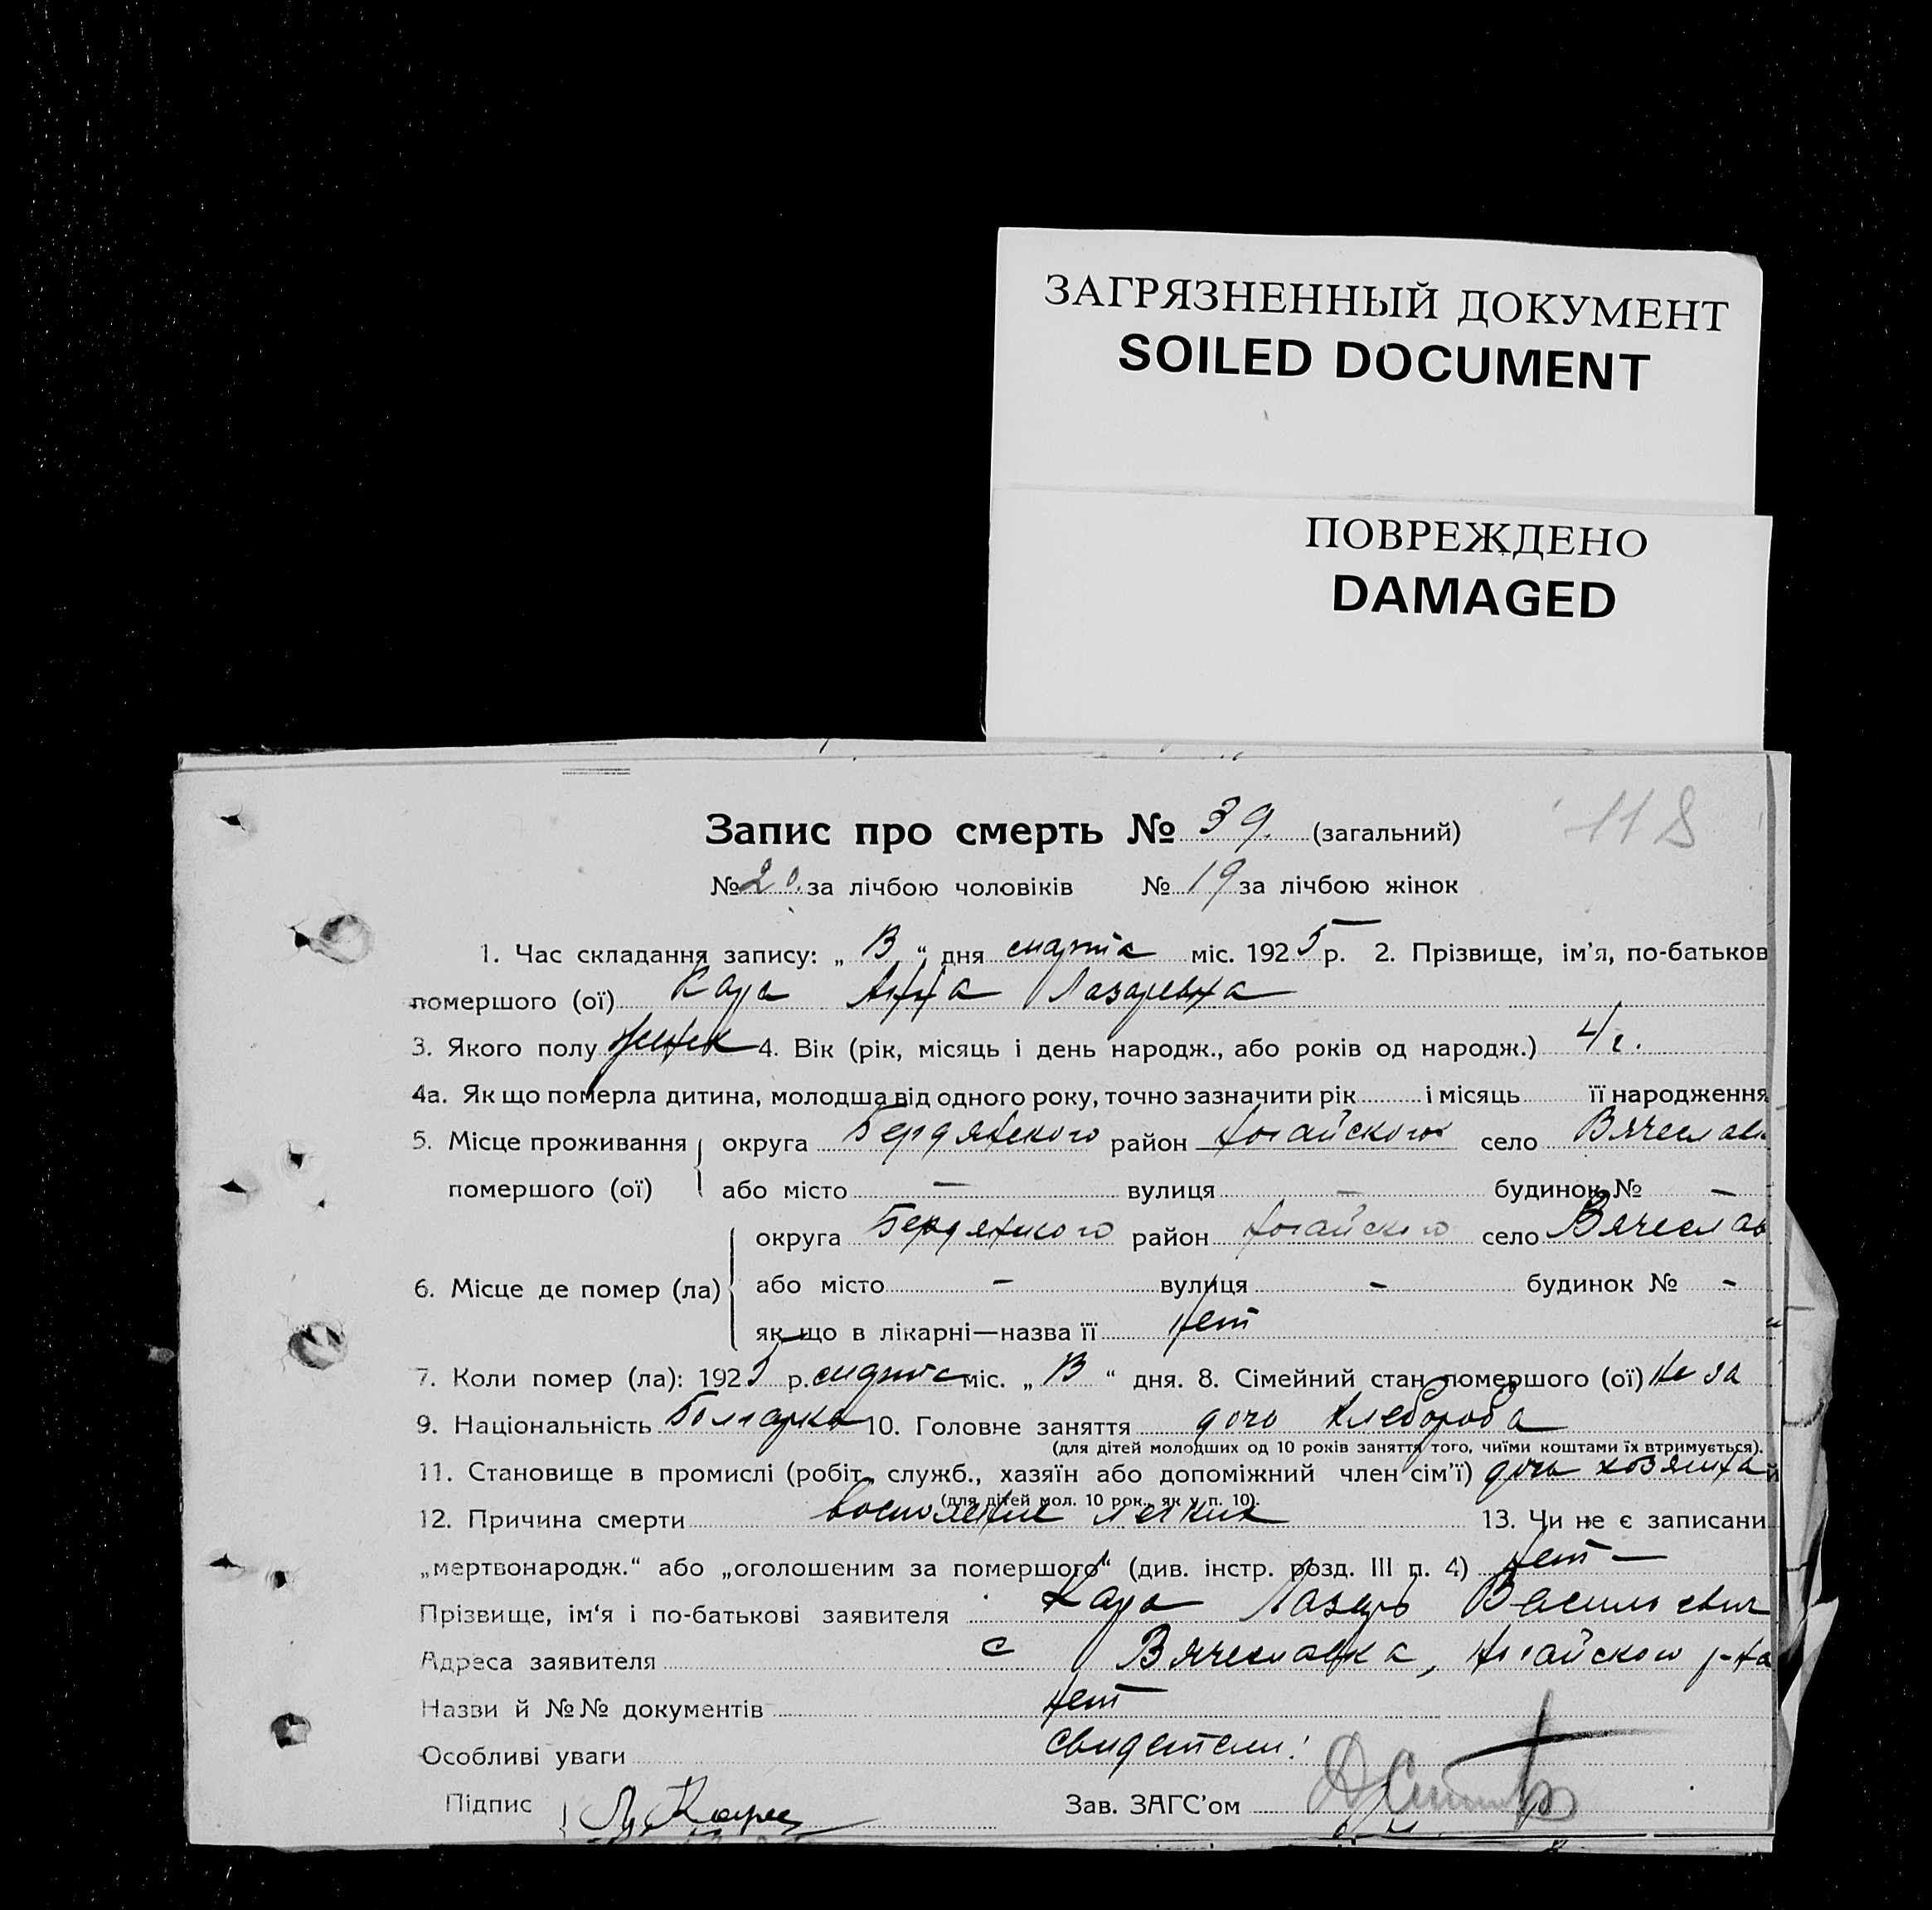 ЗАГРЯЗНЕННЫЙ ДОКУМЕНТ
SOILED DOCUMENT
ПОВРЕЖДЕНО
DAMAGED
118
Запис про смерть № 39. (загальний)
№ 20. за лічбою чоловіків № 19 за лічбою жінок
1. Час складання запису: „ 13 “ дня марта міс. 1925 р. 2. Прізвище, ім’я, по-батьков
помершого (ої) Кара Анна Лазаревна
3. Якого полу женск 4. Вік (рік, місяць і день народж., або років од народж.) 4 г.
4а. Як що померла дитина, молодша від одного року, точно зазначити рік і місяць її народження
5. Місце проживання округа Бердянского район Ногайского село Вячеслав
помершого (ої) або місто — вулиця — будинок № —
округа Бердянского район Ногайского село Вячеслав
6. Місце де помер (ла) або місто — вулиця - будинок № -
як що в лікарні—назва її нет
7. Коли помер (ла): 1925 р. марта міс. „ 13 “ дня. 8. Сімейний стан помершого (ої) не за
9. Національність Болгарка 10. Головне заняття дочь хлебороба
(для дітей молодших од 10 років заняття того, чиїми коштами їх втримується).
11. Становище в промислі (робіт., служб., хазяїн або допоміжний член сім’ї) дочь хозяина й
(для дітей мол. 10 рок., як у п. 10).
12. Причина смерти воспаление легких 13. Чи не є записани
„мертвонародж.“ або „оголошеним за помершого“ (див. інстр. розд. III п. 4) нет —
Прізвище, ім‘я і по-батькові заявителя Кара Лазарь Васильевич
Адреса заявителя с Вячеславка, Ногайского р-на
Назви й №№ документів нет
Особливі уваги свидетели:
Підпис Л Кара Зав. ЗАГС’ом